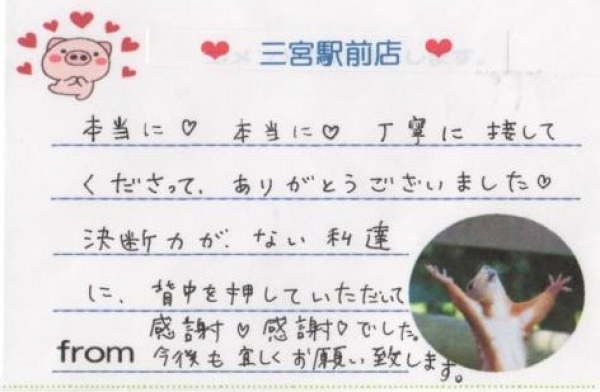 三宮駅前店
本当に♡ 本当に♡ 丁寧に接して
くださって、ありがとうございました♡
決断力が、ない私達
に、背中を押していただいて
感謝♡感謝♡でした。
from 今後も宜しくお願い致します。